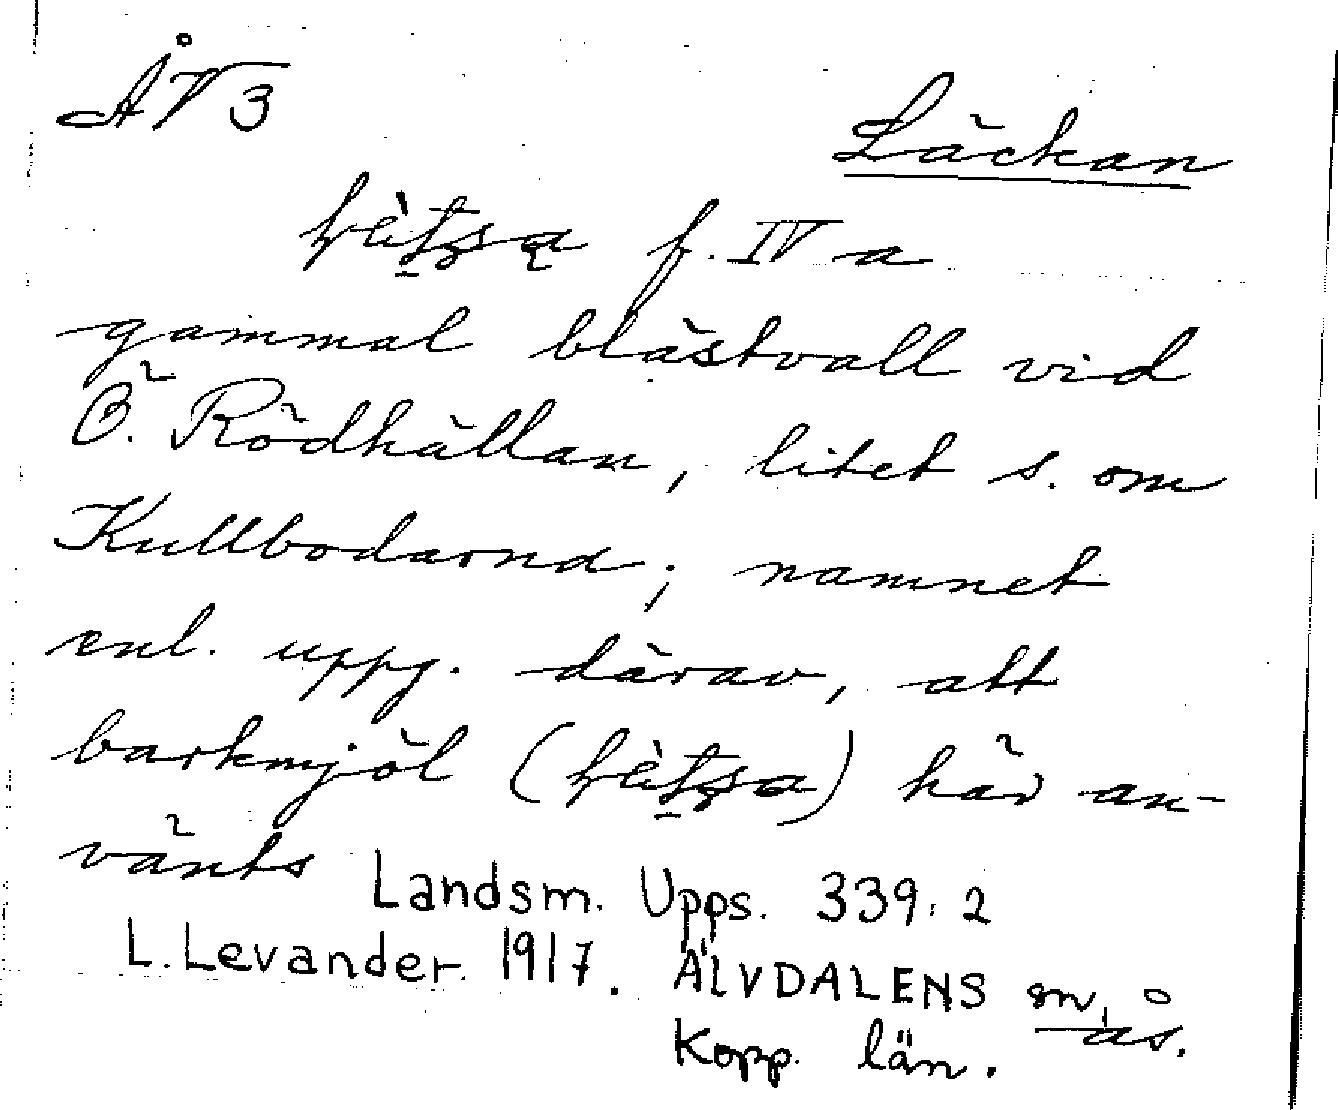 ÅV3
Läckan
f. IV a
gammal blästvall vid
Ö. Rödhällan, litet s. om
Kullbodarna; namnet
enl. uppg. därav, att
barkmjöl ( ) här an-
vänts
Landsm. Upps. 339:2
L. Levander 1917. ÄLVDALENS sn, Ås.
Kopp. län.